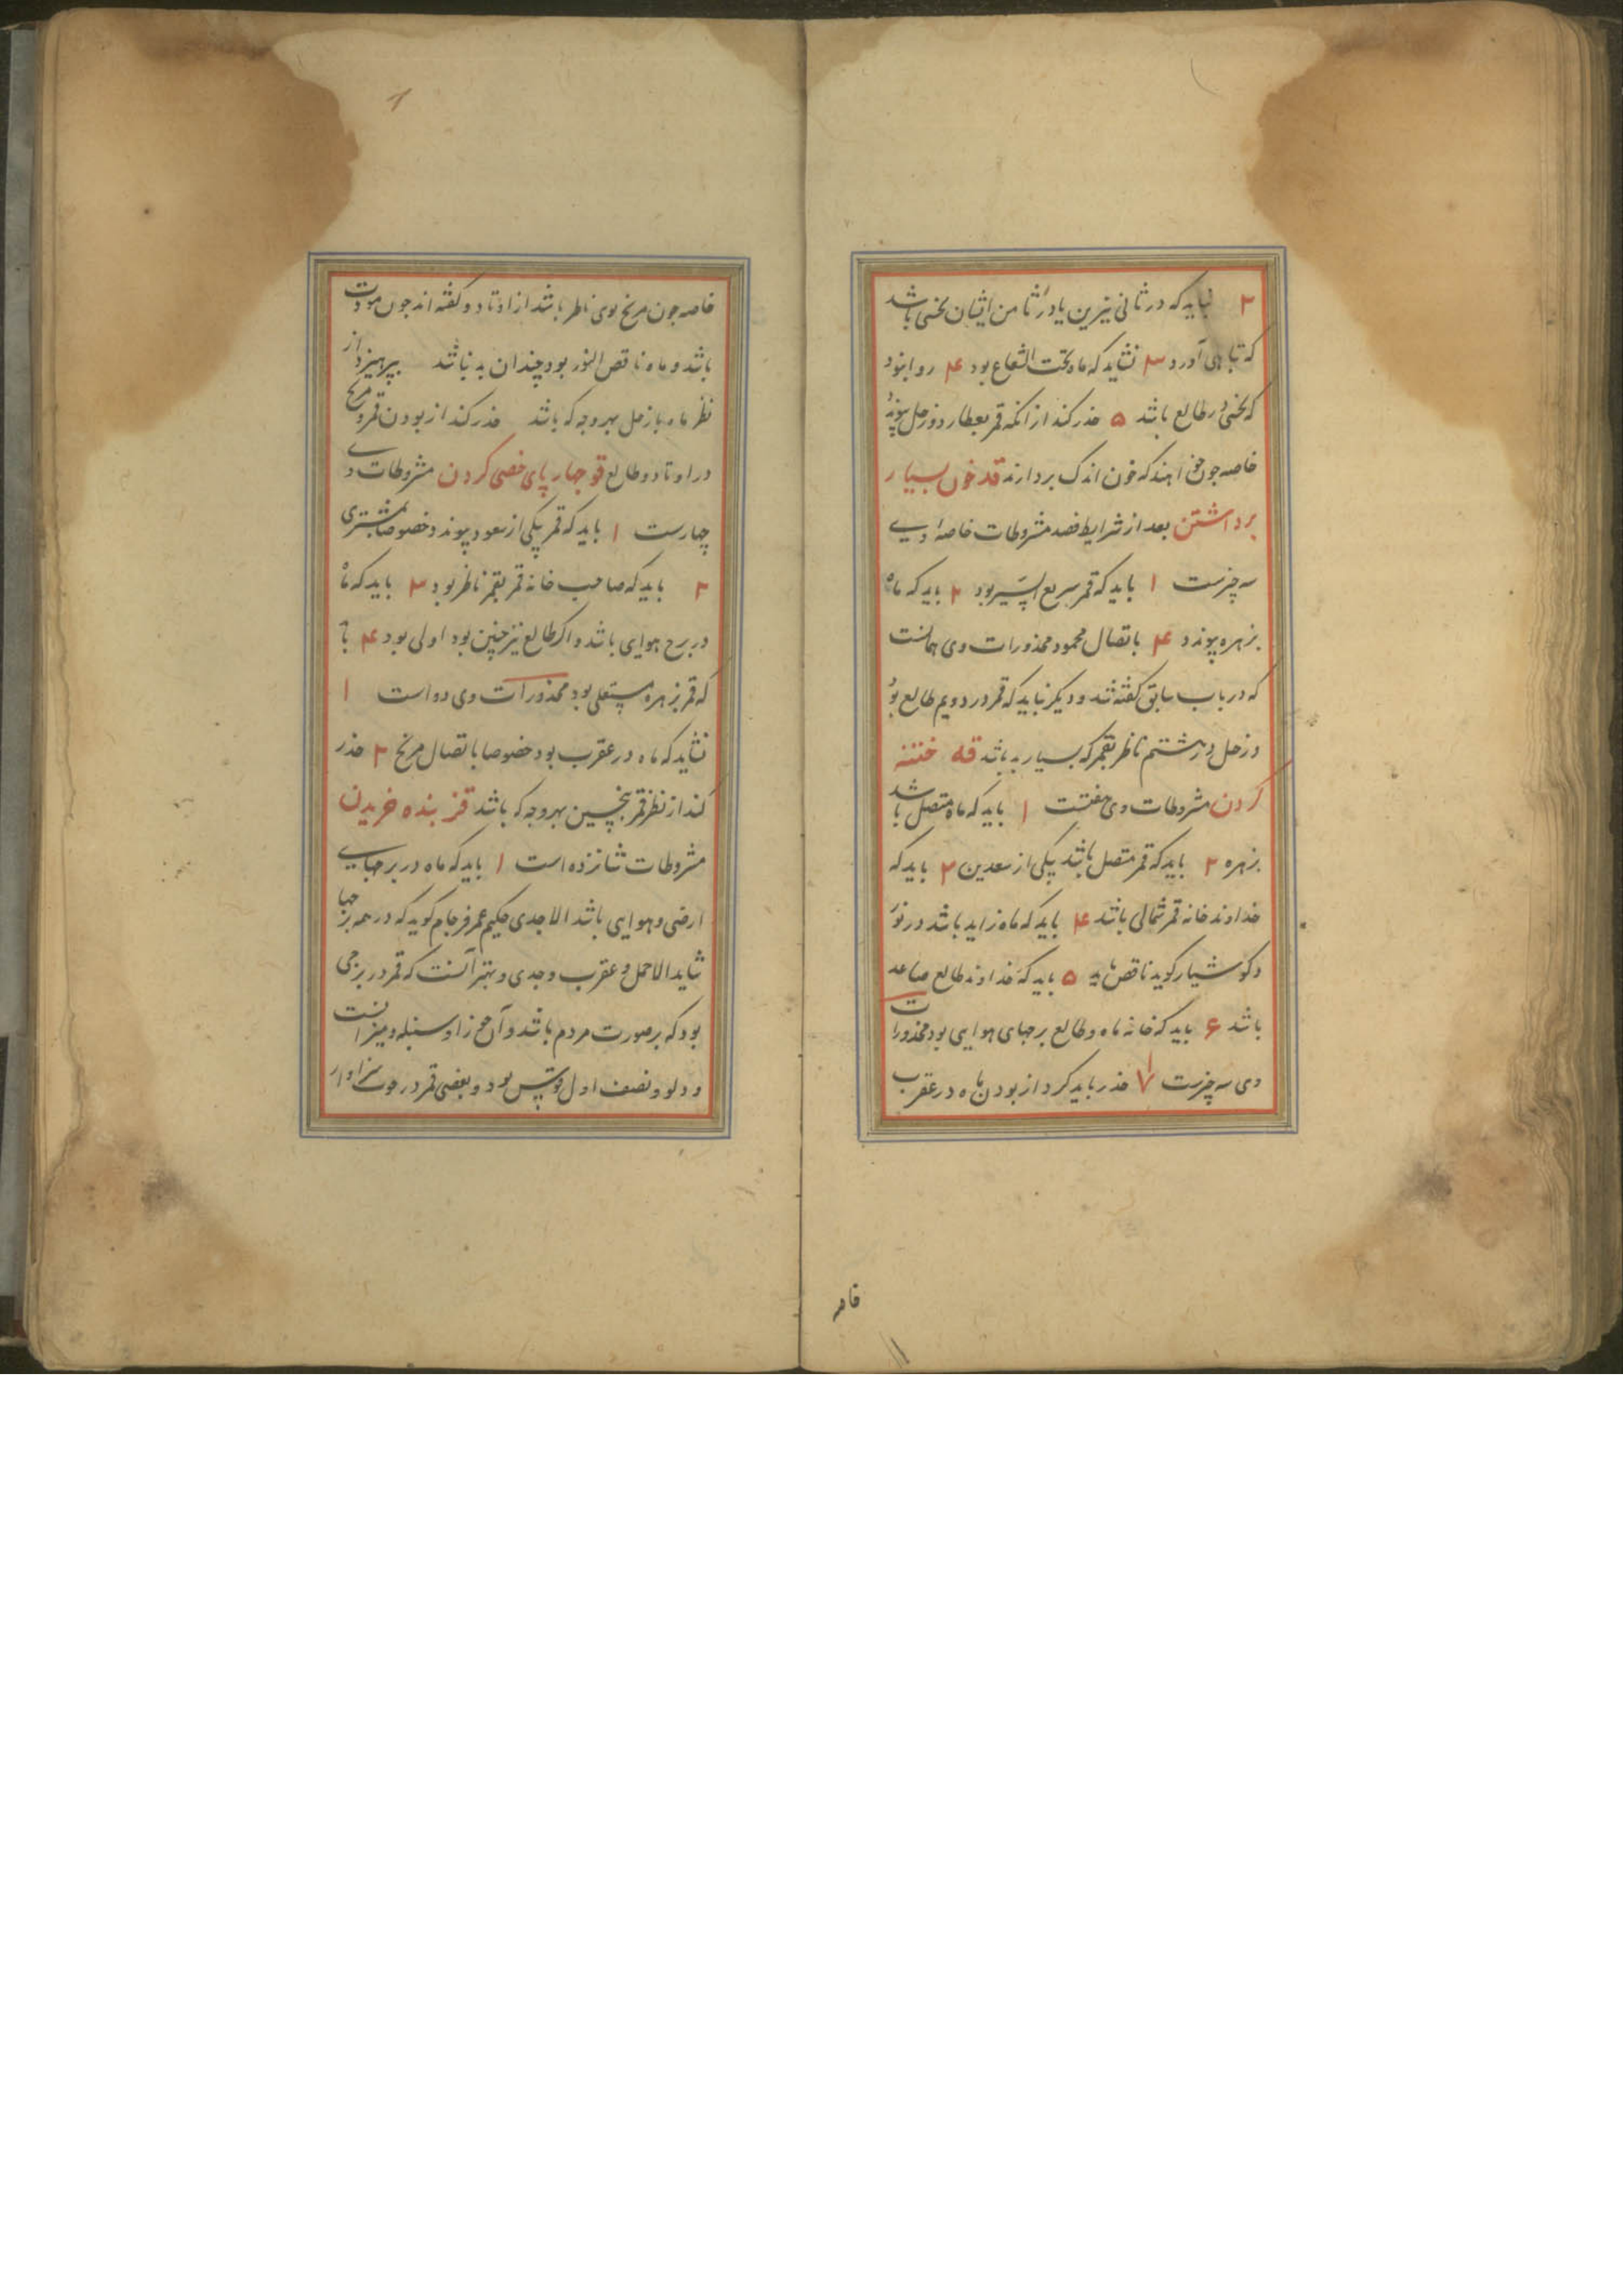 ۲ نباید که در ثانی نیرین یا در ثامن ایشان نحسی باشد
که تباهی آورد ۳ نشاید که ماه تحت الشعاع بود ۴ روا نبود
که نحسی در طالع باشد ۵ حذر کند از انکه قمر بعطارد و زحل پیوندد
خاصه چون خواهند که خون اندک بردارند قد خون بسیار
برداشتن بعد از شرایط فصد مشروطات خاصهٔ وی
سه چیزست ۱ باید که قمر سریع السیر بود ۲ باید که ماه
بزهره پیوندد ۴ باتصال محمود محذورات وی همانست
که در باب سابق گفته شد و دیگر نباید که قمر در دویم طالع بود
و زحل در هشتم ناظر بقمر که بسیار بد باشد قه ختنه
کردن مشروطات وی هفتست ۱ باید که ماه متصل باشد
بزهره ۲ باید که قمر متصل باشد بیکی از سعدین ۳ باید که
خداوند خانه قمر شمالی باشد ۴ باید که ماه زاید باشد در نور
و کوشیار کوید ناقص باید ۵ باید که خداوند طالع صاعد
باشد ۶ باید که خانه ماه و طالع برجهای هوایی بود محذورات
وی سه چیزست ۱ ۷ حذر باید کرد از بودن ماه در عقرب
قامر
خاصه چون مریخ بوی ناظر باشد از اوتاد و گفته اند چون مودت
باشد و ماه ناقص النور بود چندان بد نباشد بپرهیزد از
نظر ماه با زحل بهر وجه که باشد حذر کند از بودن قمر و مریخ
در اوتاد و طالع قو چهار پای خصی کردن مشروطات وی
چهارست ۱ باید که قمر بیکی از سعود پیوندد خصوصا بمشتری
۲ باید که صاحب خانه قمر بقمر ناظر بود ۳ باید که ماه
در برج هوایی باشد و اگر طالع نیز چنین بود اولی بود ۴ باید
که قمر بزهره مستعلی بود محذورات وی دو است ۱
نشاید که ماه در عقرب بود خصوصا باتصال مریخ ۲ حذر
کند از نظر قمر بنحسین بهر وجه که باشد قز بنده خریدن
مشروطات شانزده است ۱ باید که ماه در برجهای
ارضی و هوایی باشد الا جدی حکیم عمر فرجام کوید که در همه برجها
شاید الا حمل و عقرب و جدی و بهتر آنست که قمر در برجی
بود که بر صورت مردم باشد و آن جوزا و سنبله و میزانست
و دلو و نصف اول قوس بود و بعضی قمر در حوت سزاوار